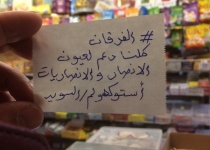 # الفرقان
كلنا دعم لعيون
الانصار والانصاريات
أستوكهولم/السويد